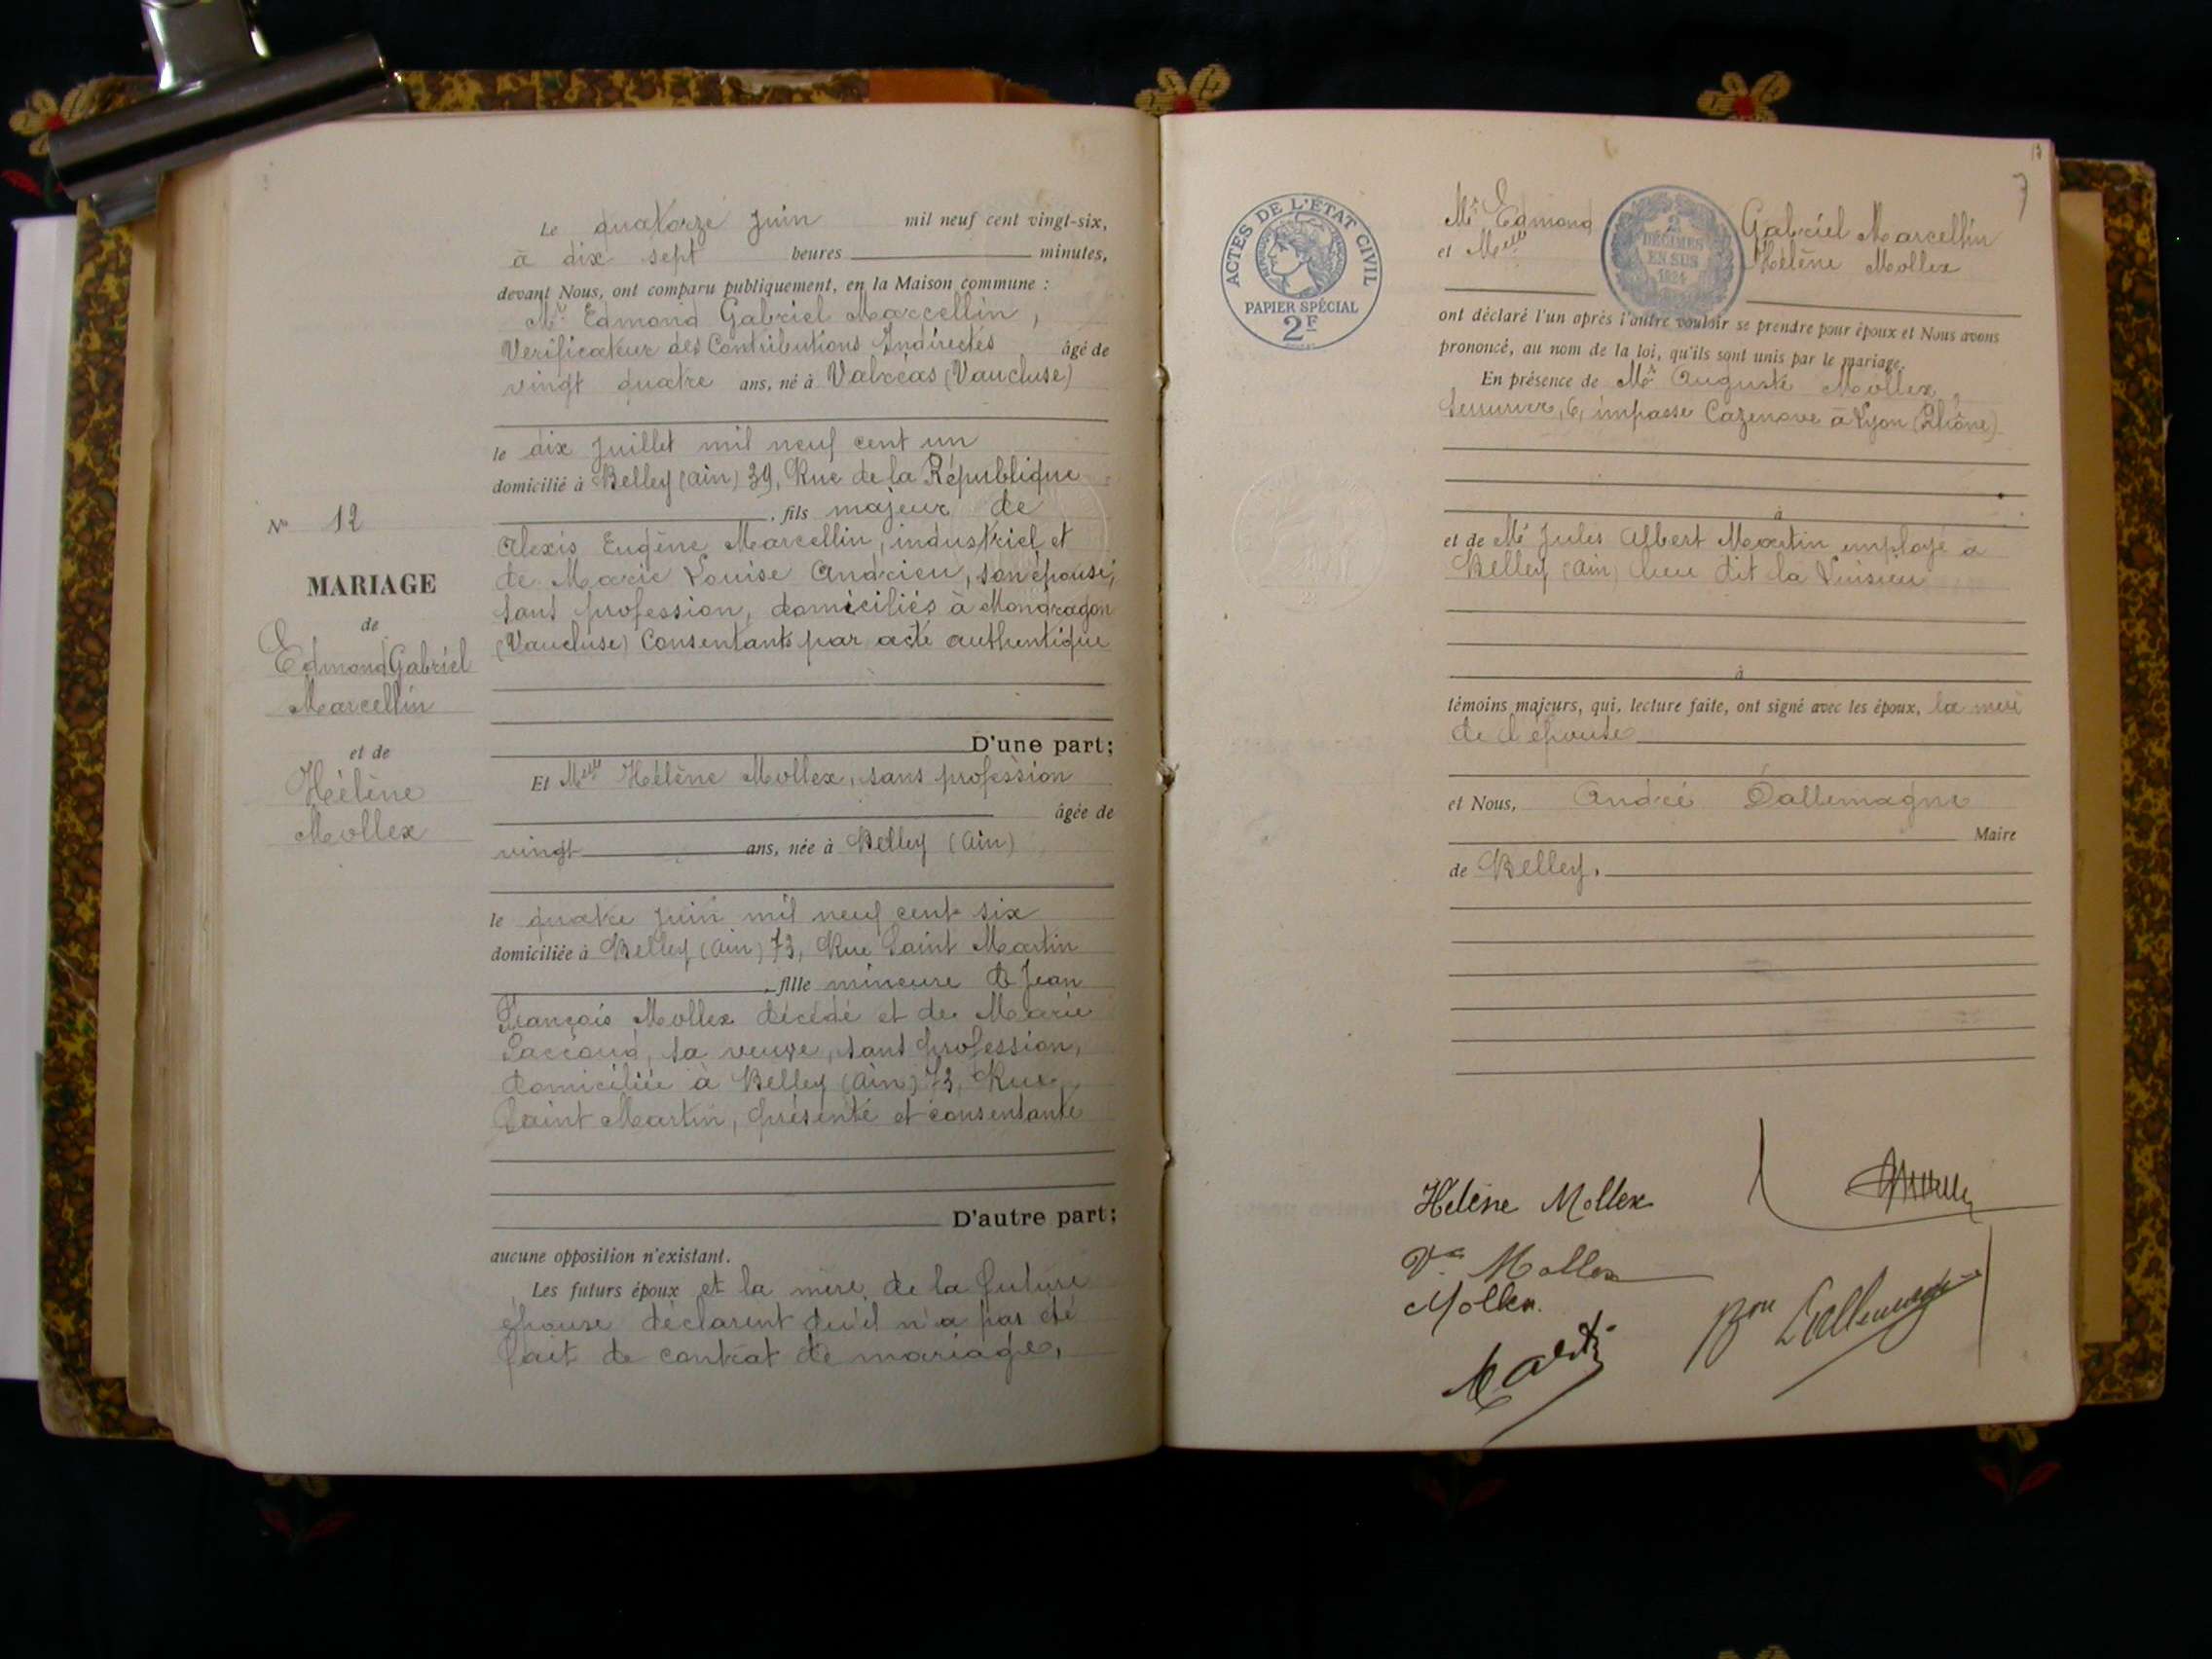 Le quatorze Juin mil neuf cent vingt-six,
à dix sept heures minutes,
devant Nous, ont comparu publiquement, en la Maison commune :
Mr Edmond Gabriel Marcellin,
Verificateur des Contributions Indirectes âgé de
vingt quatre ans, né à Valréas (Vaucluse)
le dix Juillet mil neuf cent un
domicilié à Belley (Ain) 39, Rue de la République
, fils majeur de
Alexis Eugène Marcellin, industriel et
de Marie Louise Andrieu, son épouse,
sans profession, domiciliés à Mondragon
(Vaucluse) Consentants par acte authentique
D'une part;
Et Melle Hélène Mollex, sans profession
âgée de
vingt ans, née à Belley (Ain)
le quatre juin mil neuf cent six
domiciliée à Belley (Ain) 73, Rue Saint Martin
, fille mineure de Jean
François Mollex décédé et de Marie
Saccoud, sa veuve, sans profession,
domiciliée à Belley (Ain) 73, Rue
Saint Martin, présente et consentante
D'autre part;
aucune opposition n'existant.
Les futurs époux et la mère de la future
épouse déclarent qu'il n'a pas été
fait de contrat de mariage,
No 12
MARIAGE
de
Edmond Gabriel
Marcellin
et de
Hélène
Mollex
7
ACTES DE L'ÉTAT CIVIL
PAPIER SPÉCIAL
2F
2
DÉCIMES
EN SUS
1924
Mr Edmond Gabriel Marcellin
et Melle Hélène Mollex
ont déclaré l'un après l'autre vouloir se prendre pour époux et Nous avons
prononcé, au nom de la loi, qu'ils sont unis par le mariage.
En présence de Mr Auguste Mollex,
Serrurier, 6, impasse Cazenove à Lyon (Rhône)
à
et de Mr Jules Albert Martin employé à
Belley (Ain) lieu dit la
à
témoins majeurs, qui, lecture faite, ont signé avec les époux, la mère
de l'épouse
et Nous, André Dallemagne
Maire
de Belley.
Hélène Mollex
Ve Mollex
Mollex
Martin
Bon Dallemagne